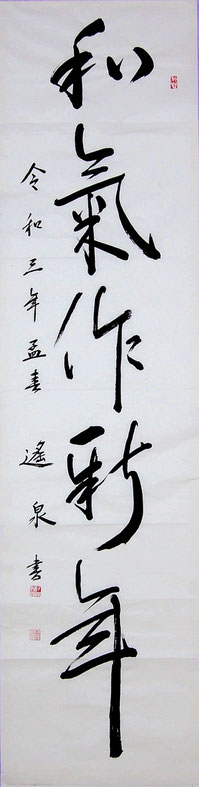 和氣作新年
令和三年孟春 遙泉書